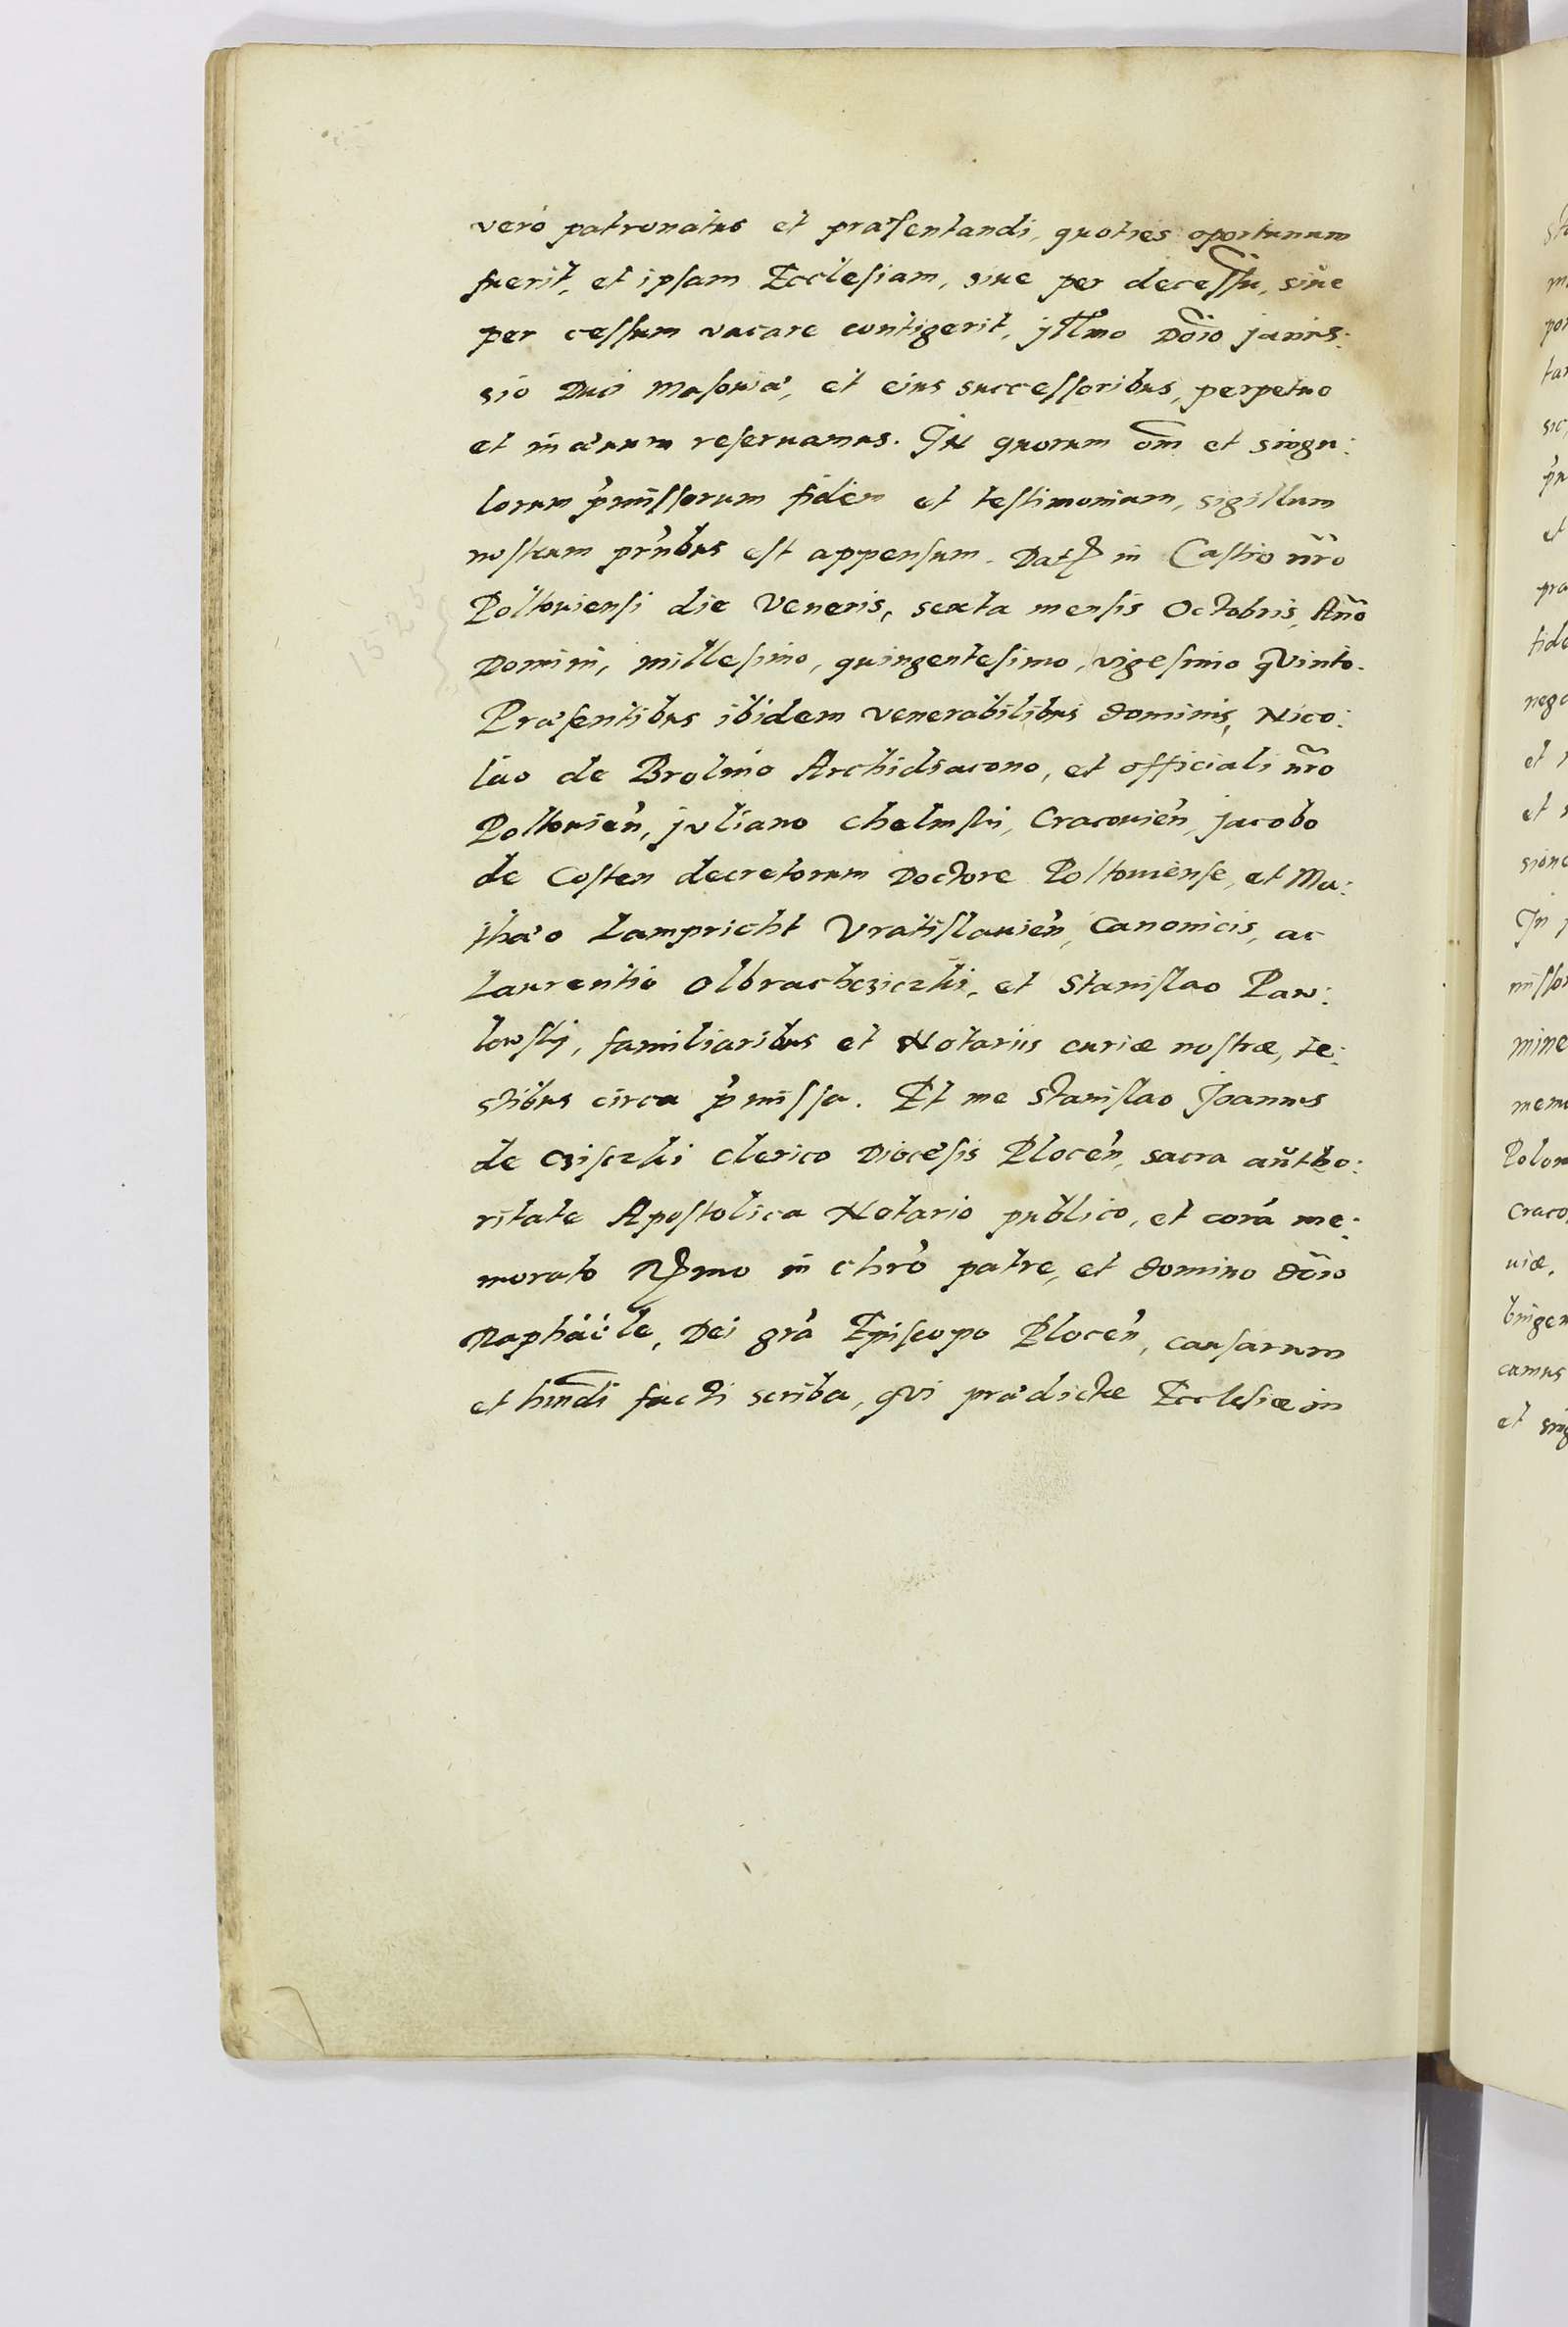 vero patronatus et præsentandi, quoties oportunum
fuerit, et ipsam Ecclesiam, siue per decessũ, siue
per cessum vacare contigerit, jllmo Dõio janus:
sio Duci Masouiæ, et eius successoribus, perpetuo
et in æuum reseruamus. In quorum om̃ et singu:
lorum p̓missorum fidem et testimonium, sigillum
nostrum pr̓ntibus est appensum. Datʒ in Castro nr̃o
Poltouiensi die Veneris, sexta mensis Octobris, Añο
Domini, millesimo, quingentesimo, vigesimo qVinto.
1525
Præsentibus ibidem venerabilibus dominis, Nico:
lao de Brolino Archidiacono, et officiali nr̃o
Poltouien̓, juliano chelmski, Cracouien̓, jacobo
de Costen decretorum Doctore Poltouiense, et Ma:
thæo Lampricht Vratislauien̓, Canonicis, ac
Laurentio Olbrachcziczki, et Stanislao Paw:
lowsky, familiaribus et Notariis curiæ nostræ, te:
stibus circa p̓missa. Et me Stanislao Joannis
de Czisczki Clerico Diocesis Plocen̓, sacra autho:
ritate Apostolica Notario publico, et corã me:
morato Rmo in chrõ patre, et domino dõio
Raphaële, Dei grã Episcopo Plocen̓, causarum
et hmõdi facti scriba, qVi prædictæ Ecclesiæ in